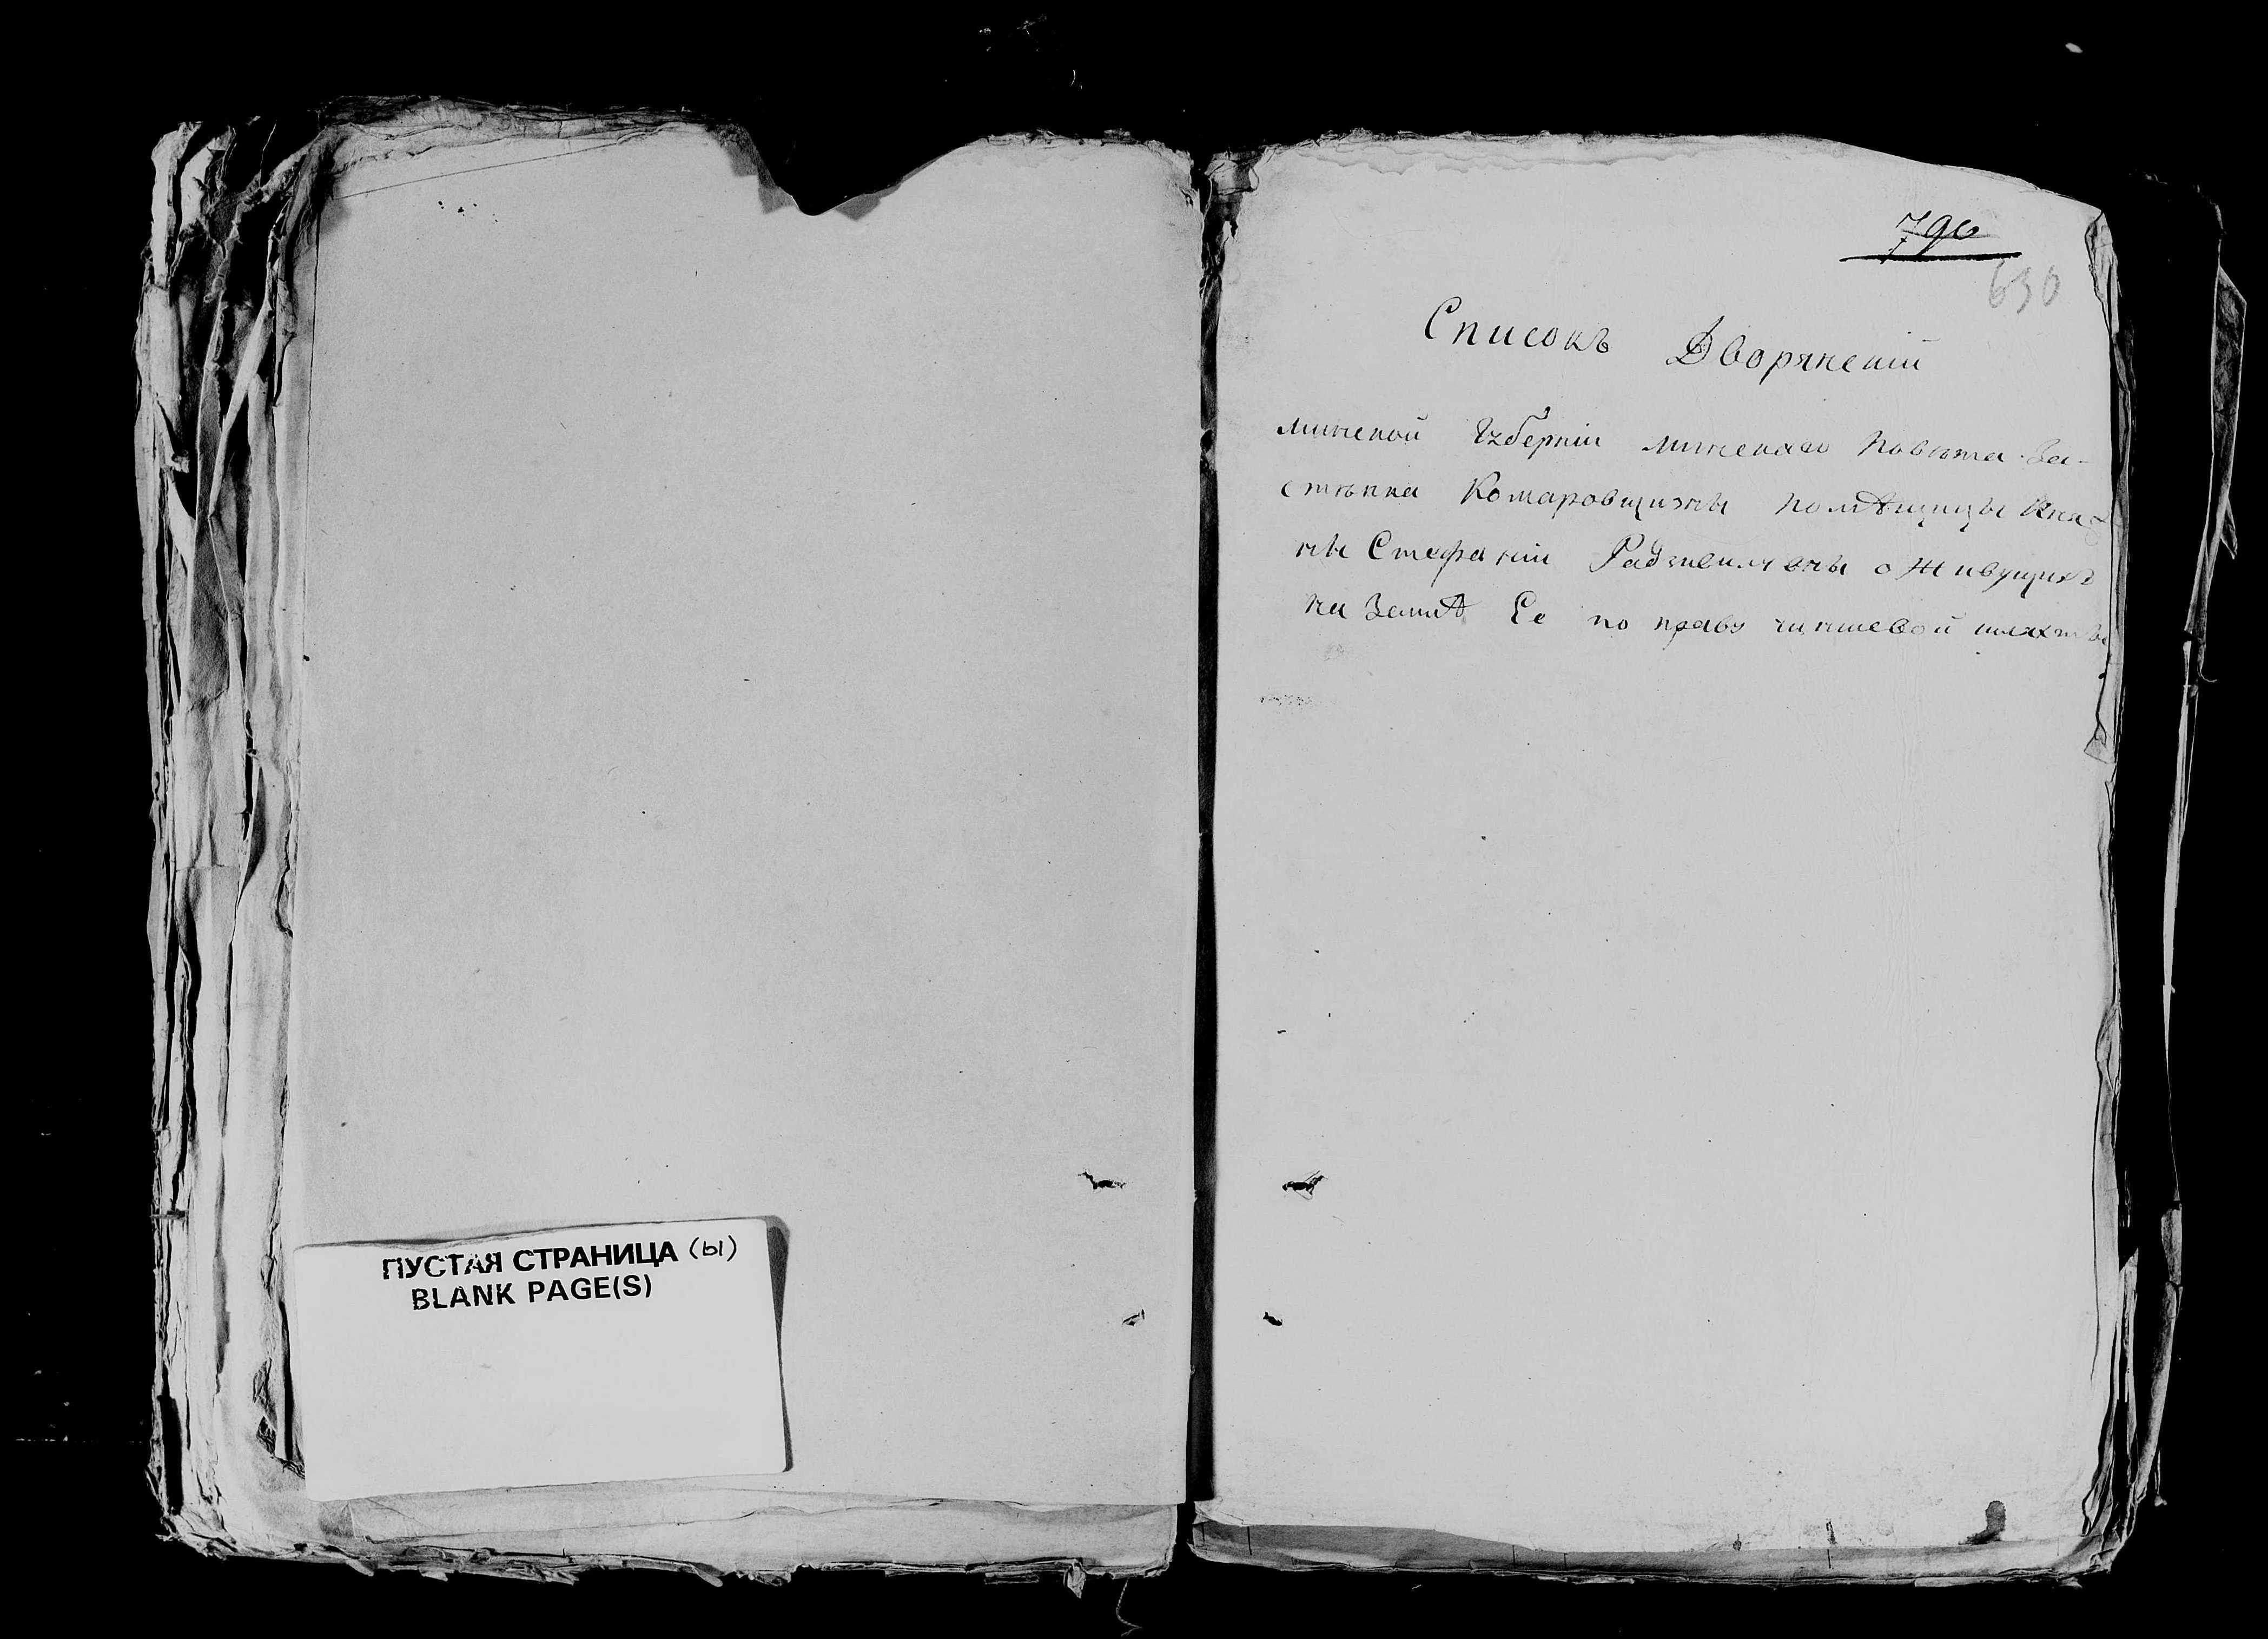 ПУСТАЯ СТРАНИЦА (ы)
BLANK PAGE(S)
790
630
Списокъ Дворянскій
минской Губерніи минскаго Повѣта За-
стѣнка Комаровщизны помѣщицы Кня-
ны Стефаніи Радзивиловны о живущихъ
на Землѣ Ее по праву чиншевой шляхты